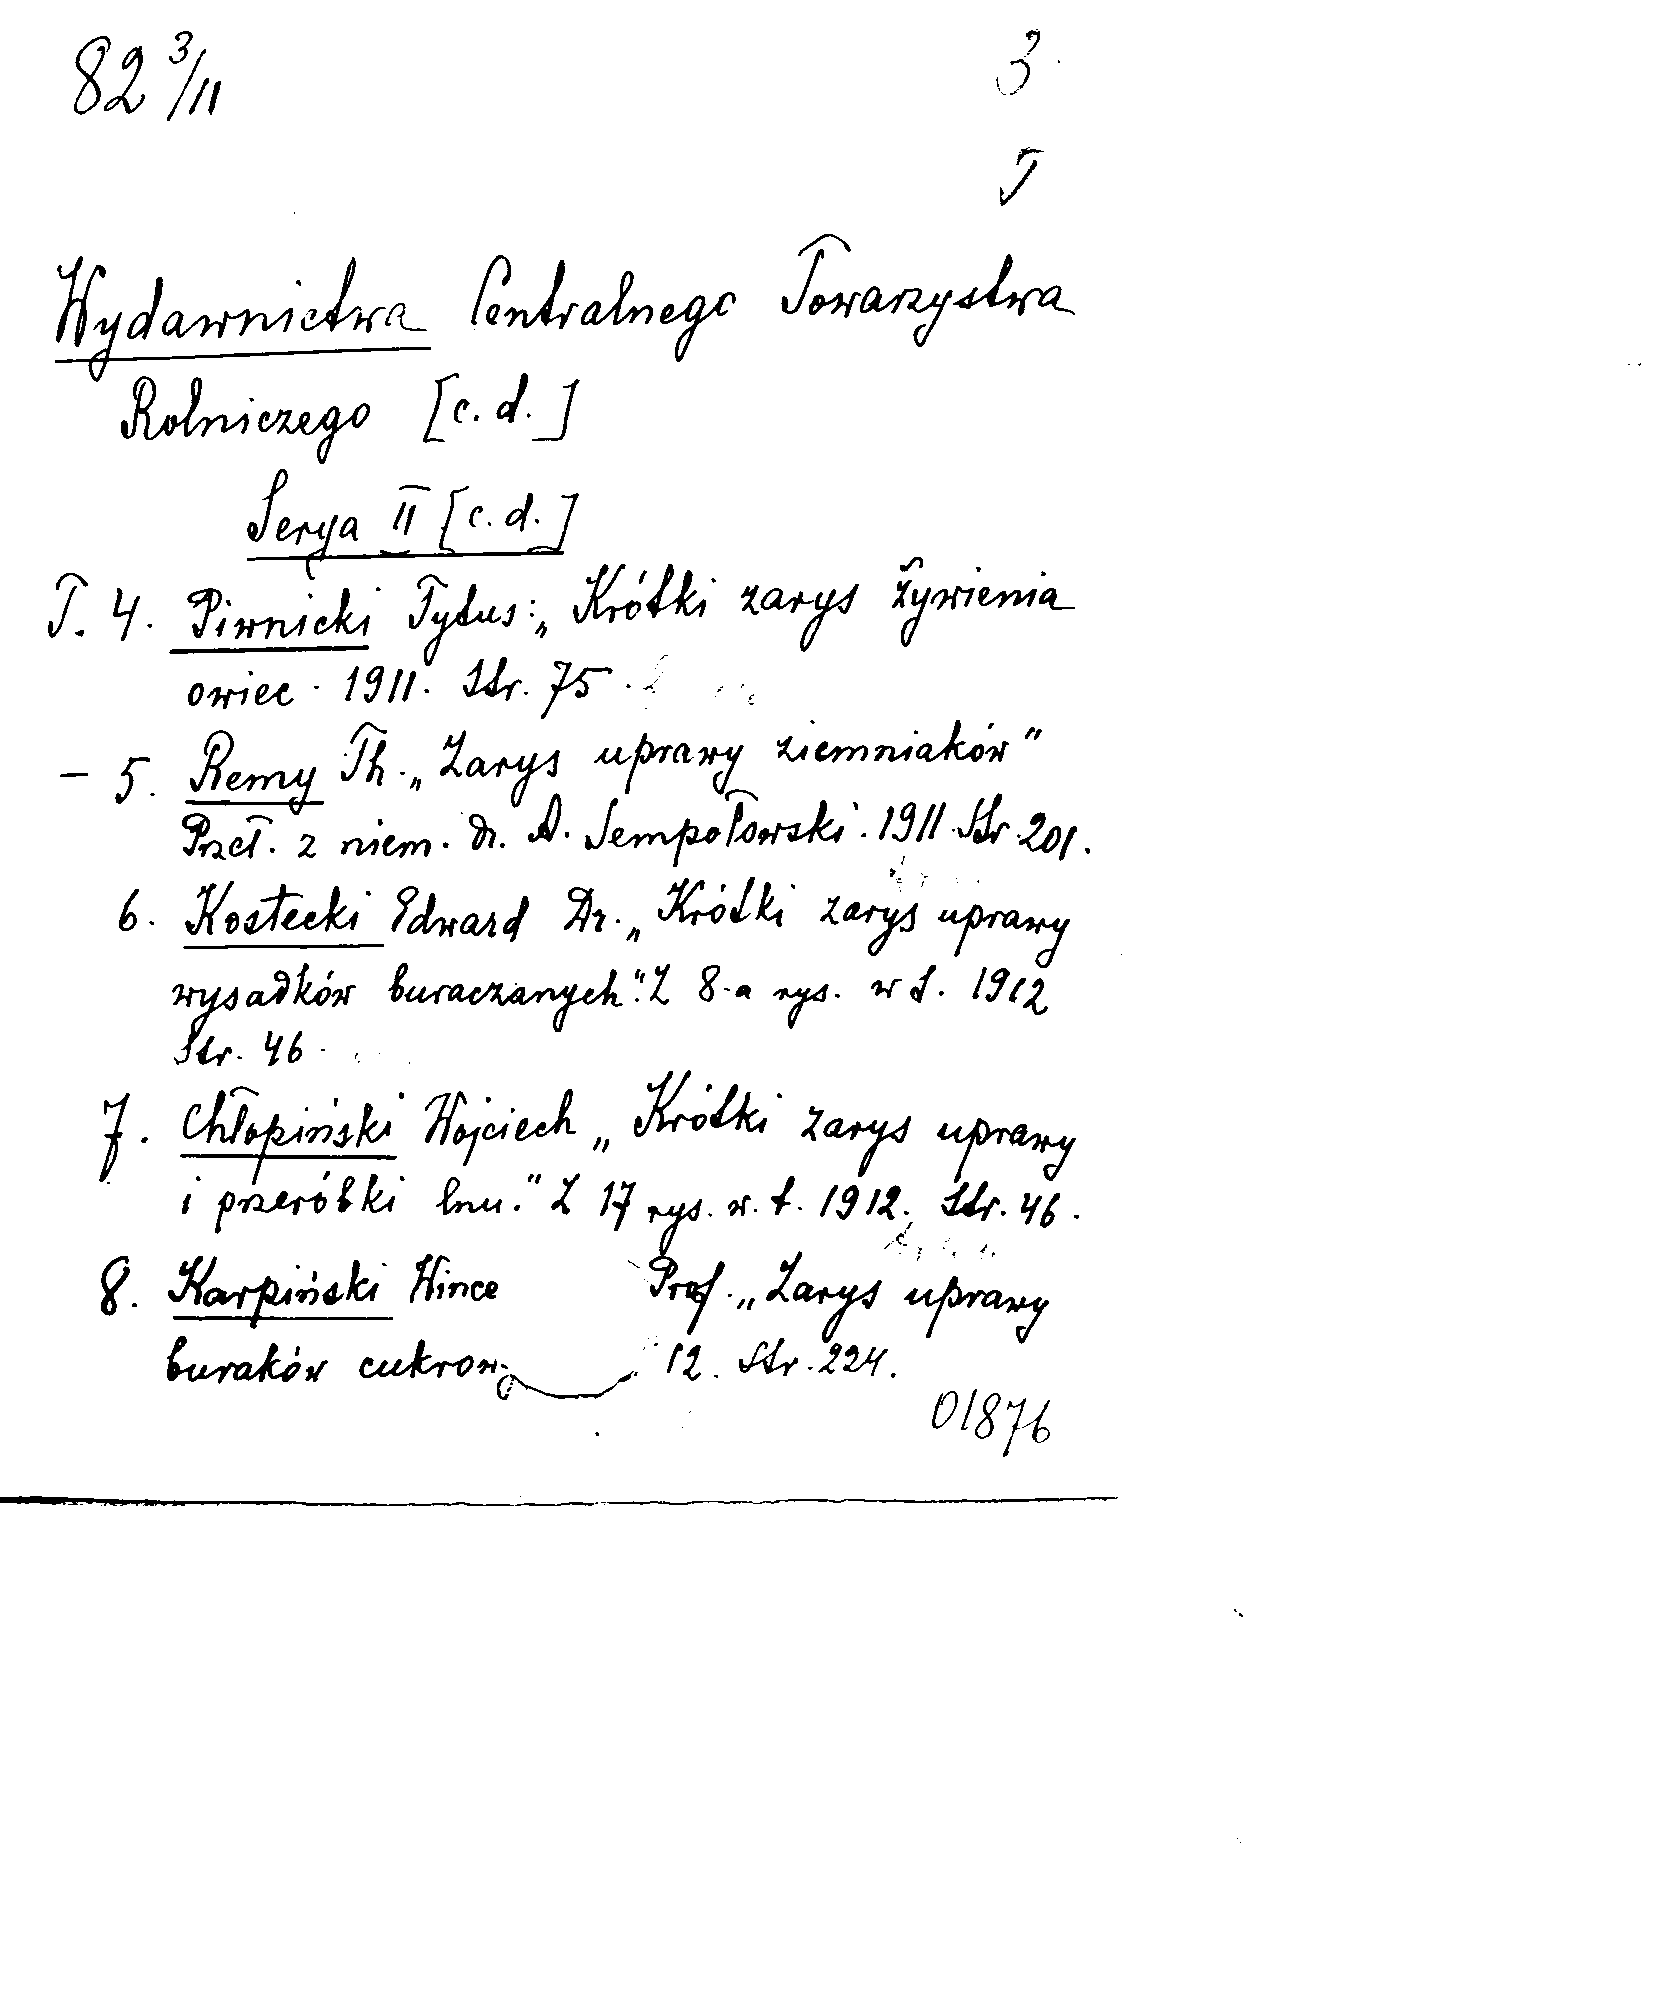 82 3/II
3
T
Wydawnictwa Centralnego Towarzystwa
Rolniczego [c. d.]
Serya II [c. d.]
T. 4. Piwnicki Tytus: „Krótki zarys żywienia
owiec. 1911. Str. 75.
– 5. Remy Th. „Zarys uprawy ziemniaków"
Przeł. z niem. dr. A. Sempołowski. 1911 Str. 201.
6. Kostecki Edward Dr. „Krótki zarys uprawy
wysadków buraczanych". Z 8-a rys. w t. 1912
Str. 46.
7. Chłopiński Wojciech „Krótki zarys uprawy
i przeróbki lnu." Z 17 rys. w. t. 1912. Str. 46.
8. Karpiński Wince Prof. „Zarys uprawy
buraków cukrow 12. Str. 224.
01876